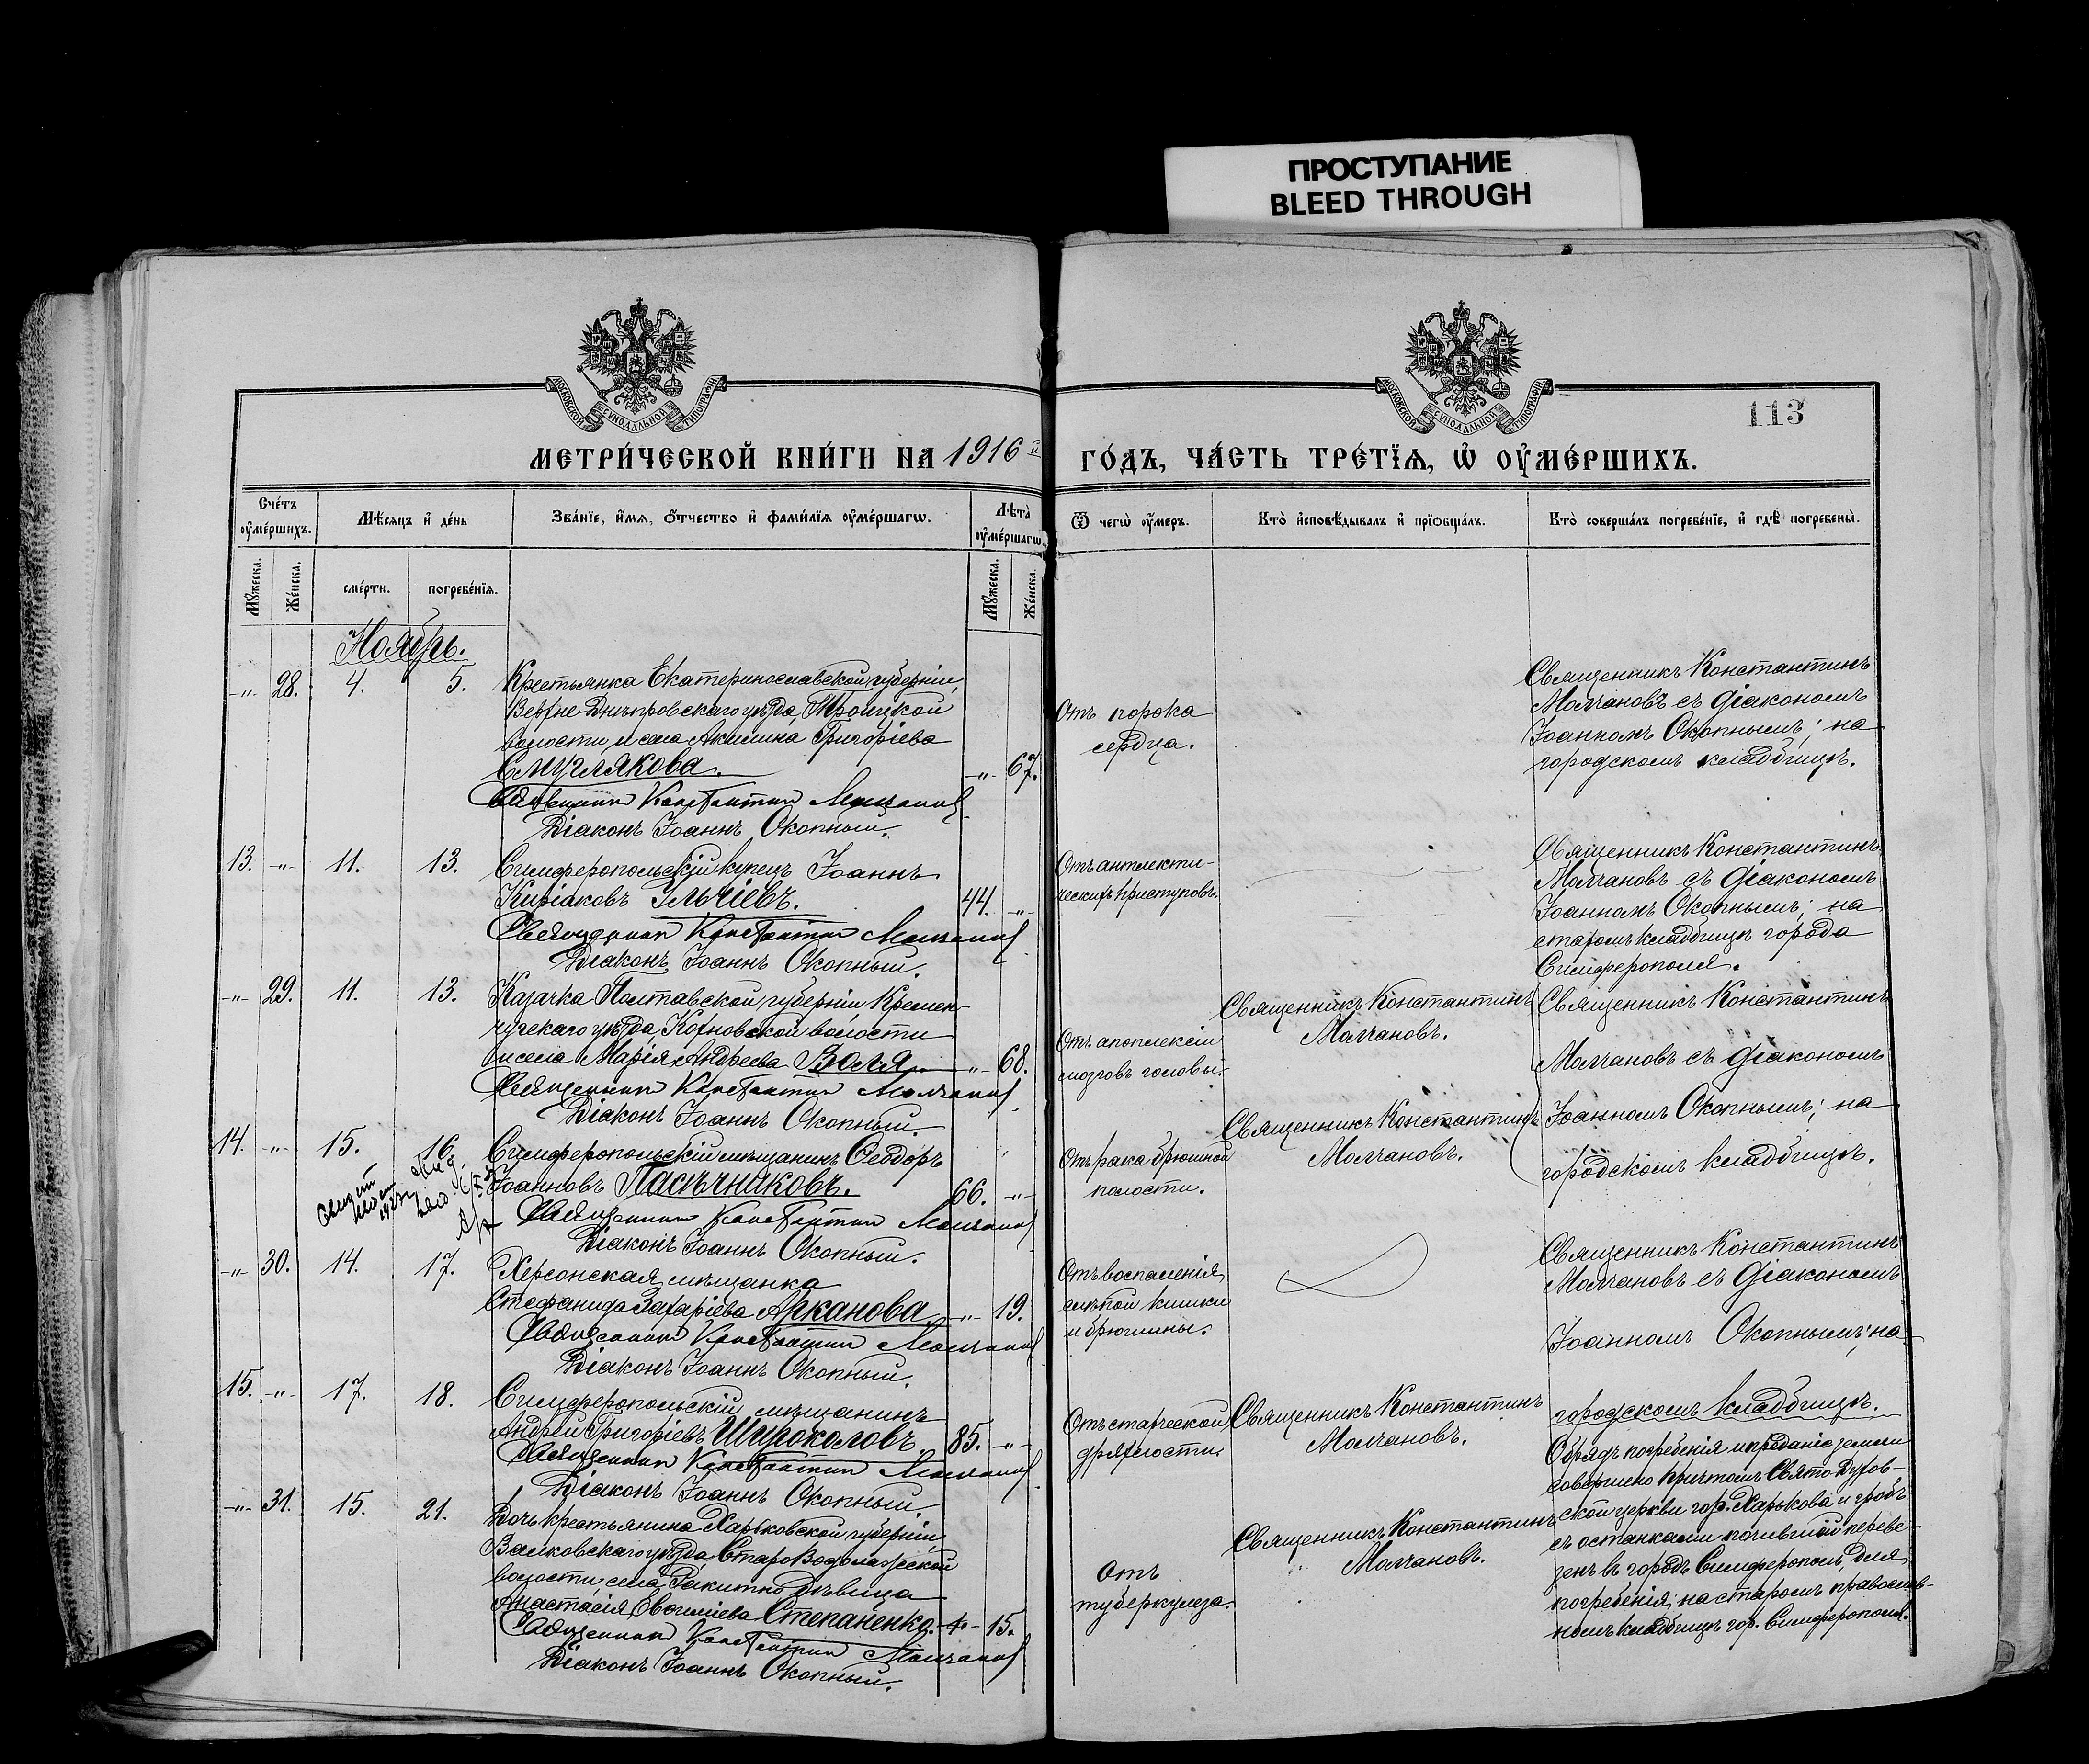 ПРОСТУПАНИЕ
BLEED THROUGH
МОСКОВСКОЙ СѴНОДАЛЬНОЙ ТИПОГРАФІИ
МОСКОВСКОЙ СѴНОДАЛЬНОЙ ТИПОГРАФІИ
113
МЕТРИ́ЧЕСКОЙ КНИ́ГИ НА 1916 й
ГО́ДЪ, ЧА́СТЬ ТРЕ́ТЇѦ, Ѡ҆ ОУ҆МЕ́РШИХЪ.
Сче́тъ оу҆ме́ршихъ.
Мѣ́сѧцъ и҆ де́нь
Зва́нїе, и҆́мѧ, ѻ҆́тчество и҆ фами́лїѧ оу҆ме́ршагѡ.
Лѣ́та оу҆ме́ршагѡ.
Ѿ чегѡ̀ оу҆́меръ.
Кто̀ и҆сповѣ́дывалъ и҆ прїѻбща́лъ.
Кто̀ соверша́лъ погребе́нїе, и҆ гдѣ̀ погребены̀.
Мꙋ́жеска. Же́нска.
сме́рти. погребе́нїѧ.
Мꙋ́жеска. Же́нска.
Ноябрь.
-"- 28. 4. 5. Крестьянка Екатеринославской губерніи,
Верхне-Днѣпровскаго уѣзда, Троицкой
волости и села Акилина Григоріева
Смуглякова. -"- 67.
Священник Константин Молчанов
Діаконъ Іоаннъ Окопный.
Отъ порока
сердца.
Священникъ Константинъ
Молчановъ съ діакономъ
Іоанномъ Окопнымъ; на
городскомъ кладбищѣ.
13. -"- 11. 13. Симферопольскій купецъ Іоаннъ
Киріаковъ Ильчіевъ. 44. -"-
Священник Константин Молчанов
Діаконъ Іоаннъ Окопный.
Отъ апплекти-
ческихъ приступовъ.
Священникъ Константинъ
Молчановъ съ діакономъ
Іоанномъ Окопнымъ; на
старомъ кладбищѣ города
Симферополя.
-"- 29. 11. 13. Казачка Полтавской губерніи Кремен-
чугскаго уѣзда Кохновской волости
и села Марія Андреева Воля. -"- 68.
Священник Константин Молчанов
Діаконъ Іоаннъ Окопный.
Отъ апоплексіи
мозговъ головы.
Священникъ Константинъ
Молчановъ.
Священникъ Константинъ
Молчановъ съ діакономъ
Іоанномъ Окопнымъ; на
городскомъ кладбищѣ.
14. -"- 15. 16. Симферопольскій мѣщанинъ Ѳеодоръ
Іоанновъ Пасѣчниковъ. 66. -"-
Священник Константин Молчанов
Діаконъ Іоаннъ Окопный.
Отъ рака брюшной
полости.
Священникъ Константинъ
Молчановъ.
-"- 30. 14. 17. Херсонская мѣщанка
Стефанида Захаріева Арканова -"- 19.
Священник Константин Молчанов
Діаконъ Іоаннъ Окопный.
Отъ воспаленія
слѣпой кишки
и брюшины.
Священникъ Константинъ
Молчановъ съ діакономъ
Іоанномъ Окопнымъ; на
городскомъ кладбищѣ.
15. -"- 17. 18. Симферопольскій мѣщанинъ
Андрей Григоріевъ Широколовъ. 85. -"-
Священник Константин Молчанов
Діаконъ Іоаннъ Окопный
Отъ старческой
дряхлости.
Священникъ Константинъ
Молчановъ.
-"- 31. 15. 21. Дочь крестьянина Харьковской губерніи,
Валковскаго уѣзда, Старо Водолажской
волости, села Ракитно дѣвица
Анастасія Евѳиміева Степаненко. -"- 15.
Священник Константин Молчанов
Діаконъ Іоаннъ Окопный.
Отъ
туберкулеза.
Священникъ Константинъ
Молчановъ.
Обрядъ погребенія и преданіе земли
совершено причтомъ Свято-Духов-
ской церкви гор. Харькова и гробъ
съ останками почившей переве-
зенъ въ городъ Симферополь, для
погребенія, на старомъ православ-
номъ кладбищѣ гор. Симферополя.